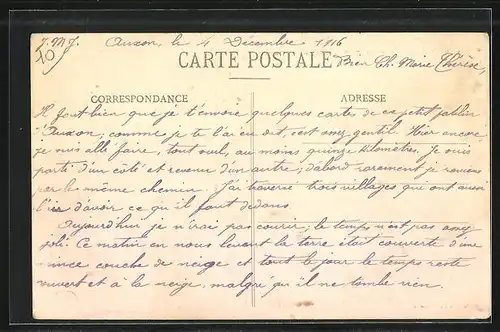 J. M. J. Auxon, le 4 Décembre 1916
10
CARTE POSTALE
Bien Ch. Marie Thérèse,
CORRESPONDANCE ADRESSE
Il faut bien que je t'envoie quelques cartes de ce petit patelin
d'Auxon; comme je te l'ai eu dit, c'est assez gentil. Hier encore
je suis allé faire, tout seul, au moins quinze kilomètres. Je suis
parti d'un coté et revenu d'un autre; d'abord rarement je reviens
par le même chemin. J'ai traversé trois villages qui ont aussi
l'air d'avoir ce qu'il faut dedans.
Aujourd'hui je n'irai pas courir; le temps n'est pas assez
joli. Ce matin en nous levant la terre était couverte d'une
mince couche de neige et tout le jour le temps reste
couvert et à la neige, malgré qu'il ne tombe rien.